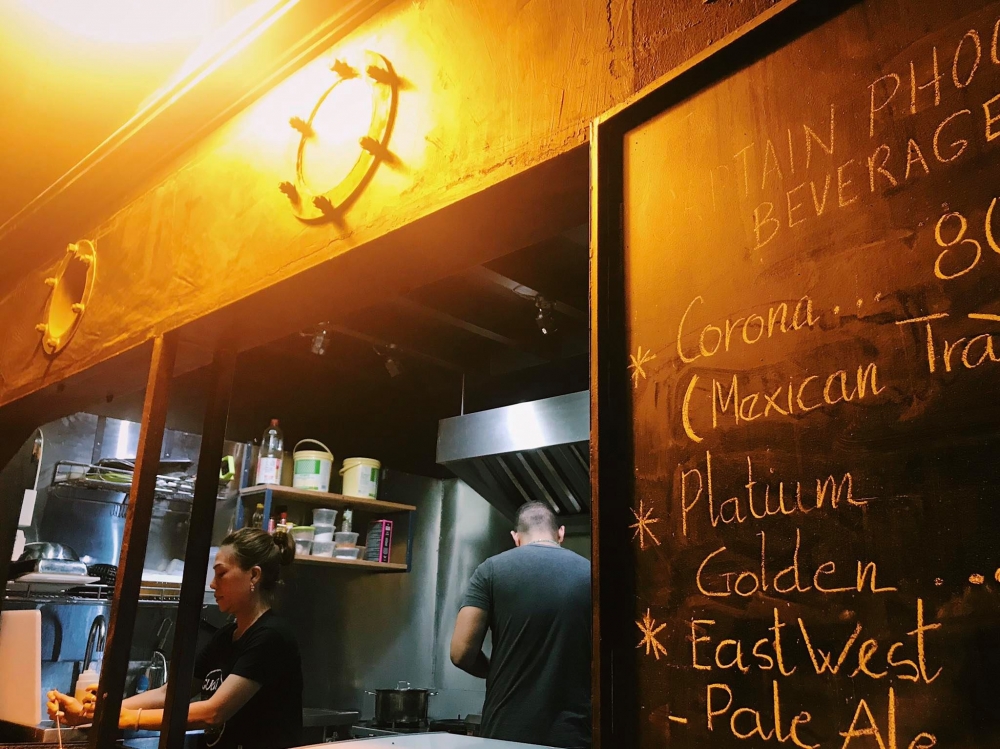 PTAIN PHO
BEVERAGE
80
* Corona...
(Mexican Tra
* Platium
Golden ...
* EastWest
- Pale Ale